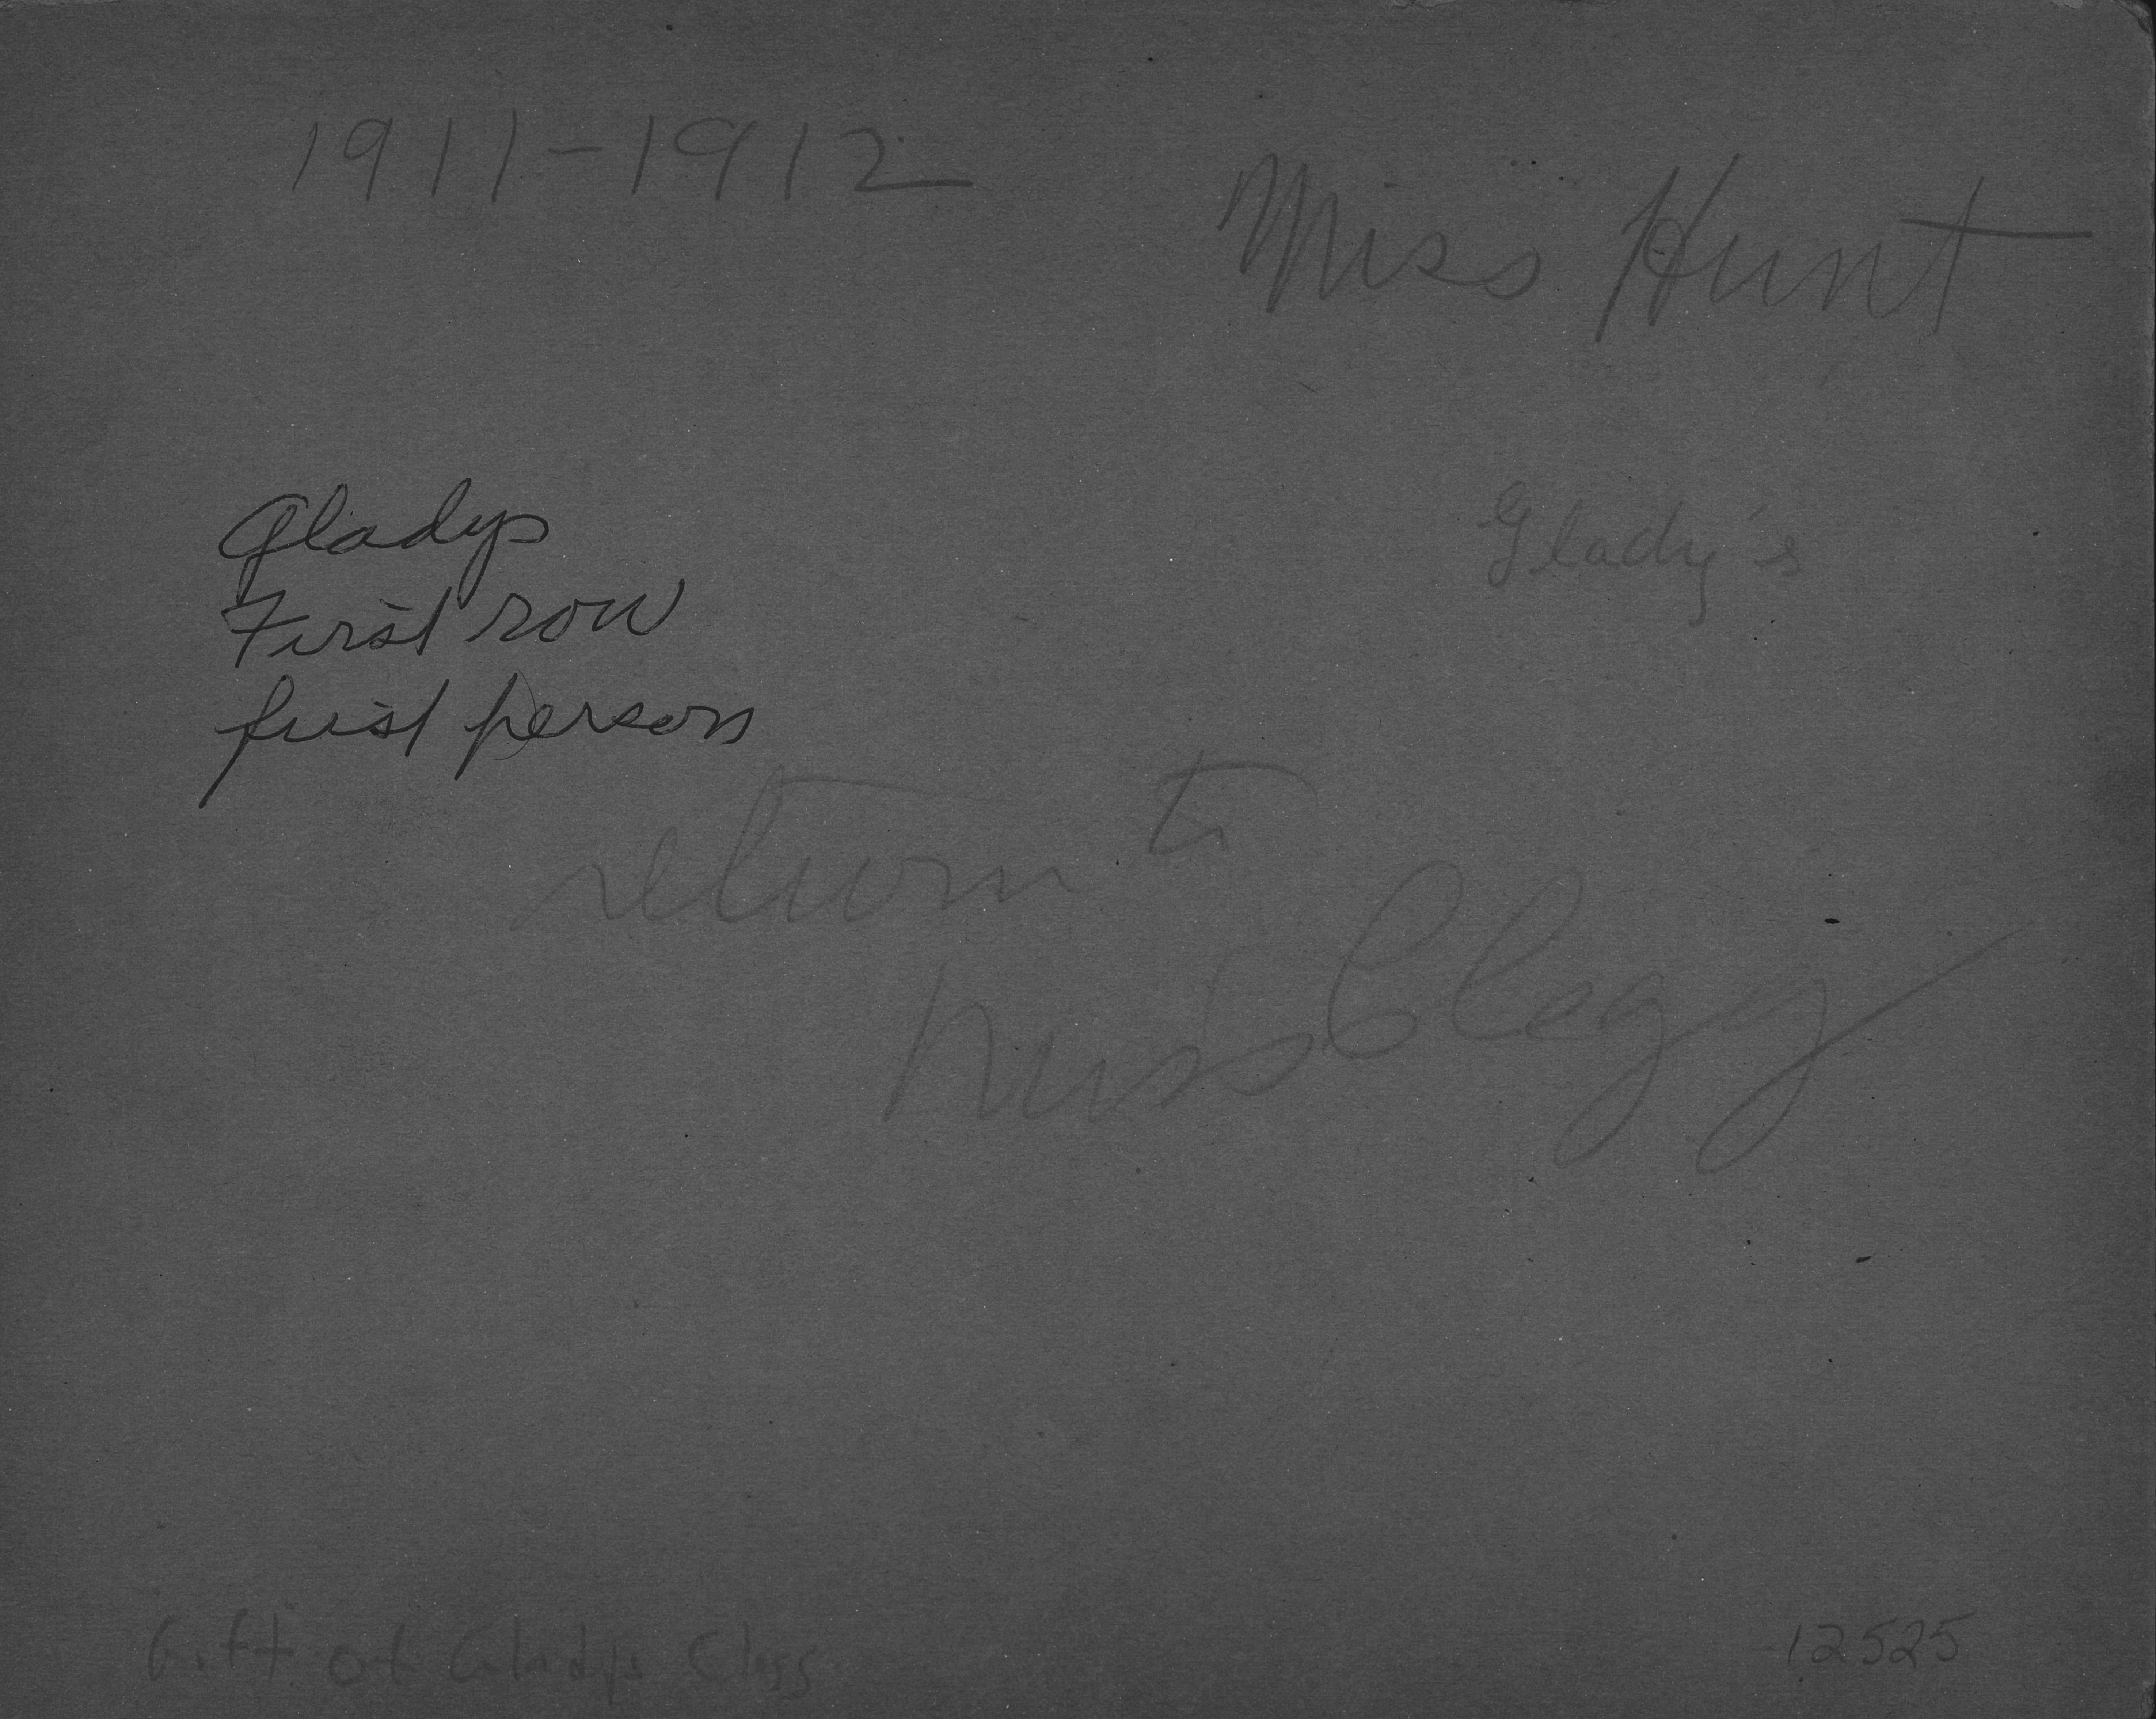 1911-1912
Miss Hunt
Gladys
First row
first person
Glady's
return to
Miss Clegg
Gift of Gladys Clegg
12525